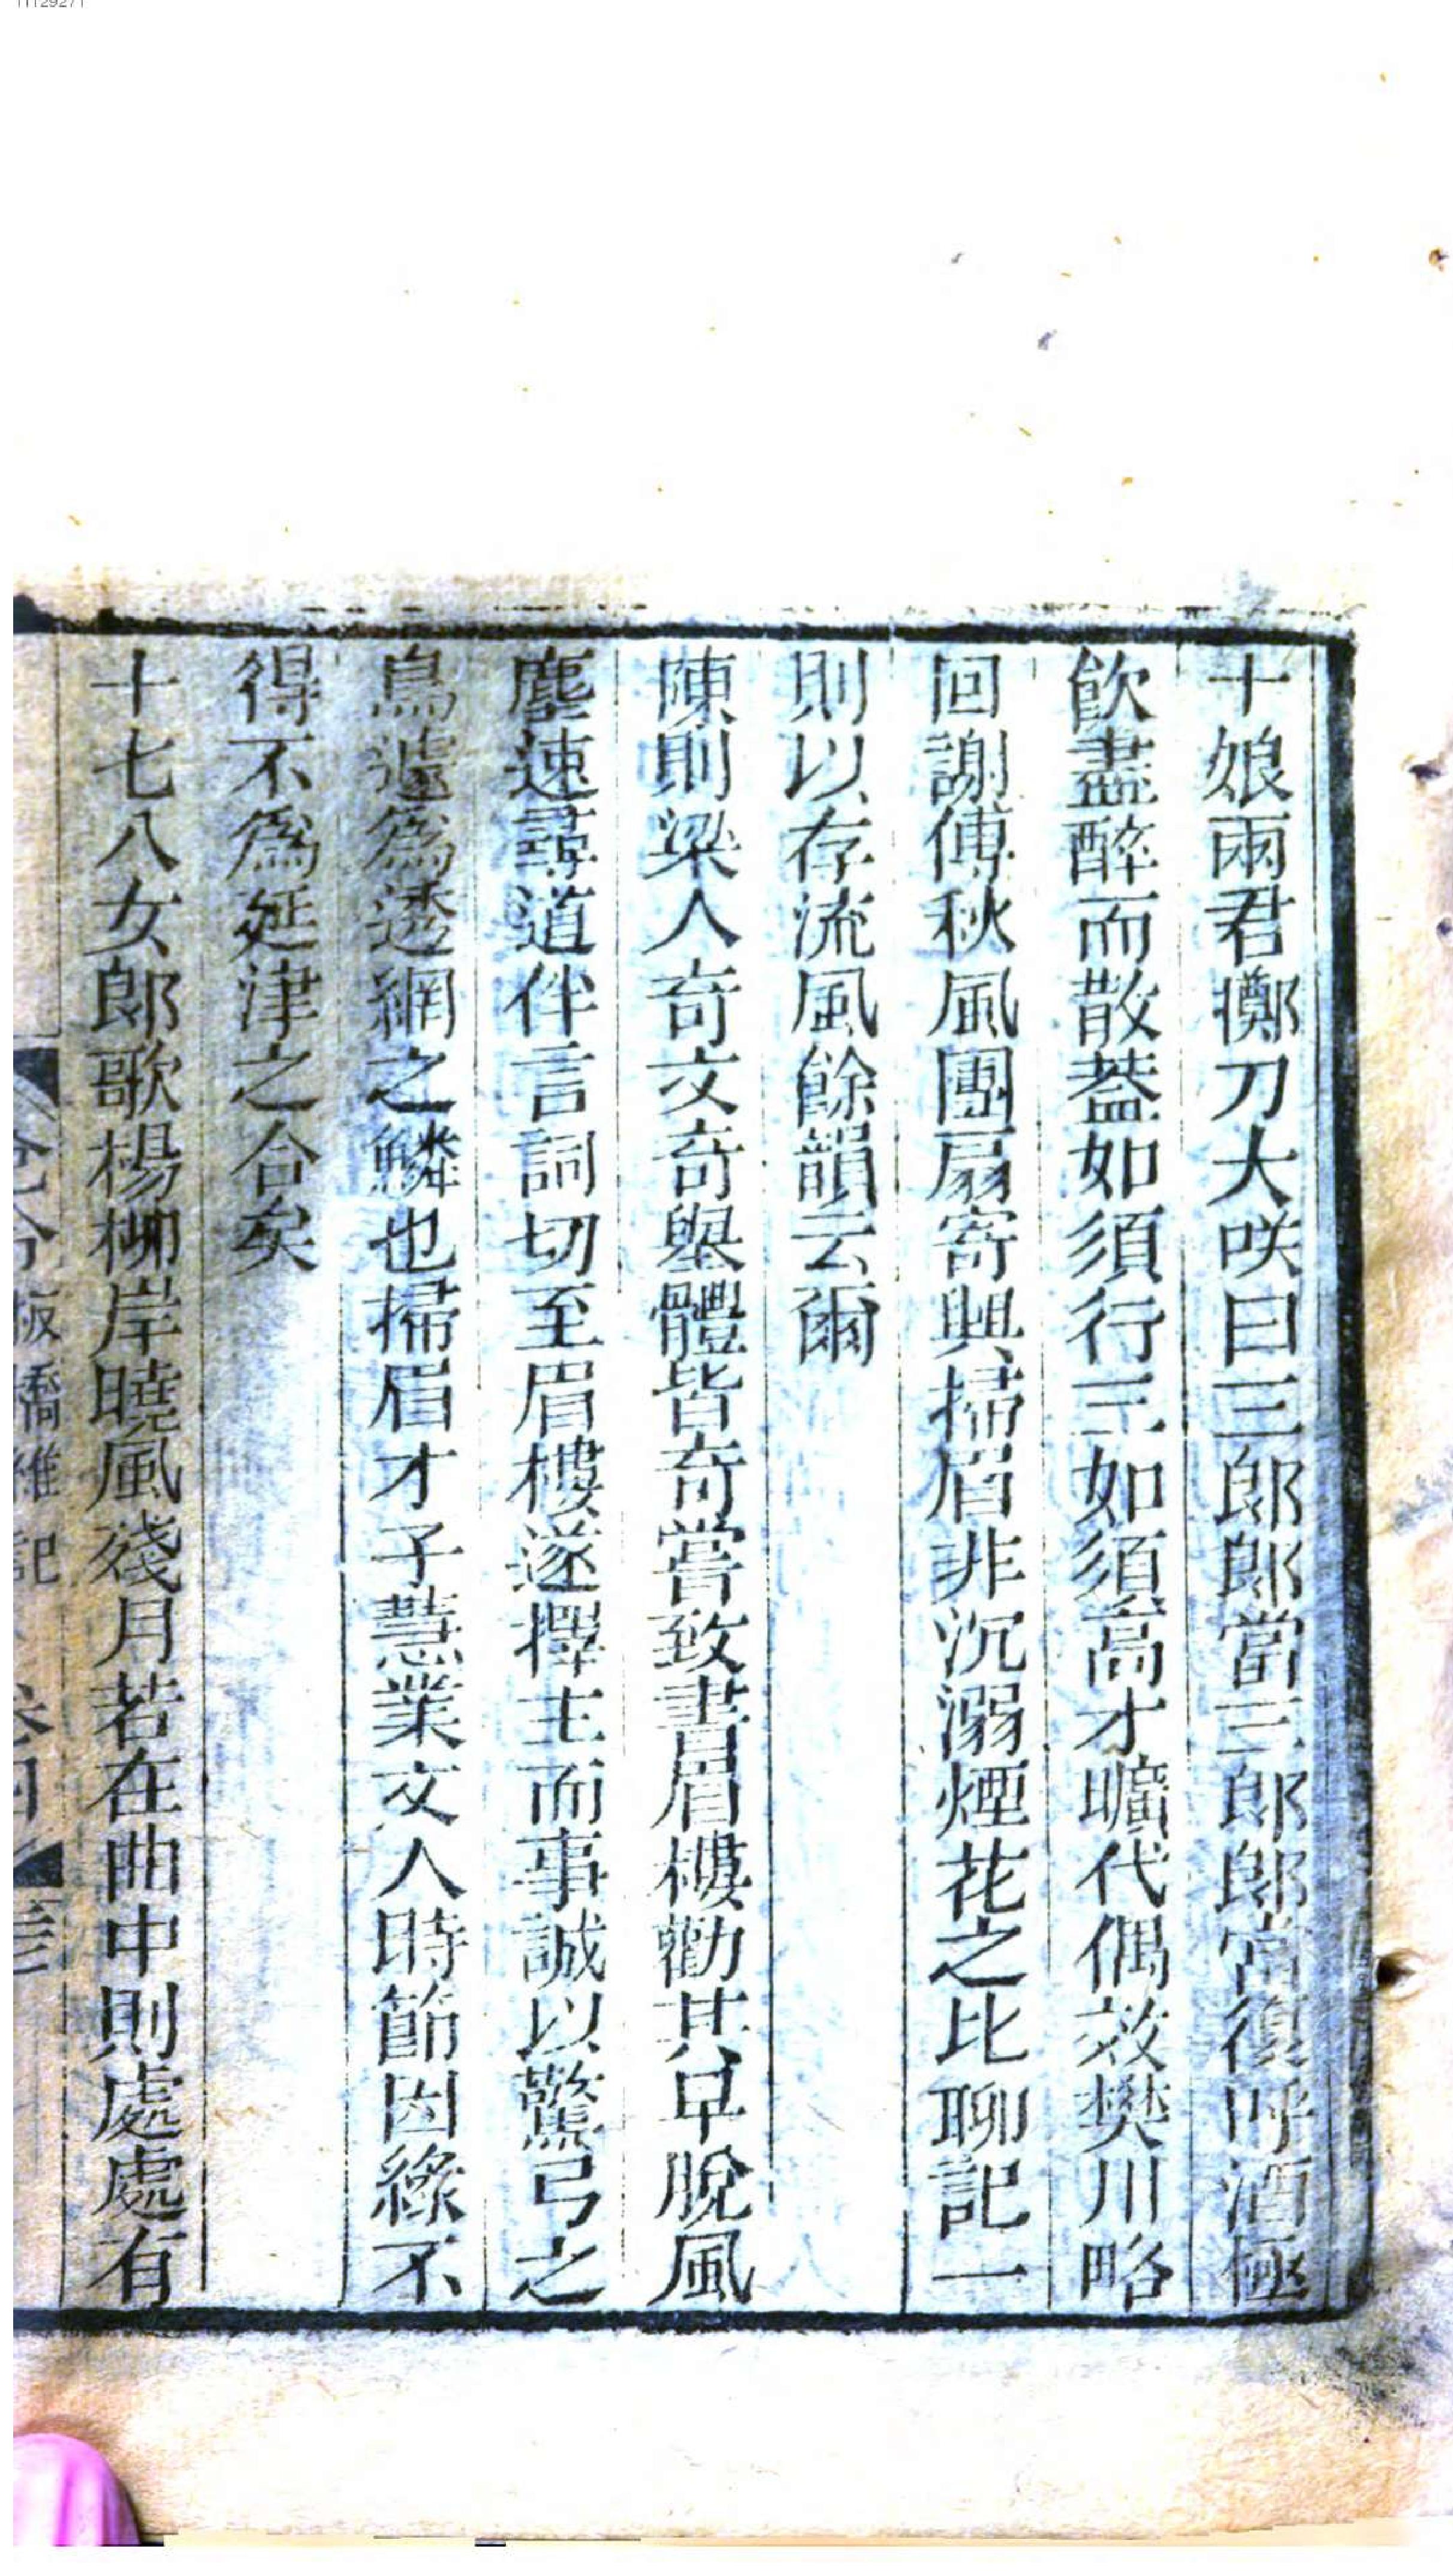 十娘兩君擲刀大咲曰三郎郎當三郎郎當復呼酒極
飲盡醉而散葢如須行三如須高才曠代偶效樊川略
同謝傅秋風團扇寄興掃眉非沉溺煙花之比聊記一
則以存流風餘韻云爾
陳則梁人奇文奇舉體皆奇嘗致書眉樓勸其早脫風
塵速尋道伴言詞切至眉樓遂擇主而事誠以驚弓之
鳥遽爲透網之鱗也掃眉才子慧業文人時節因緣不
得不爲延津之合矣
十七八女郎歌楊柳岸曉風殘月若在曲中則處處有
板橋雜記
11129271